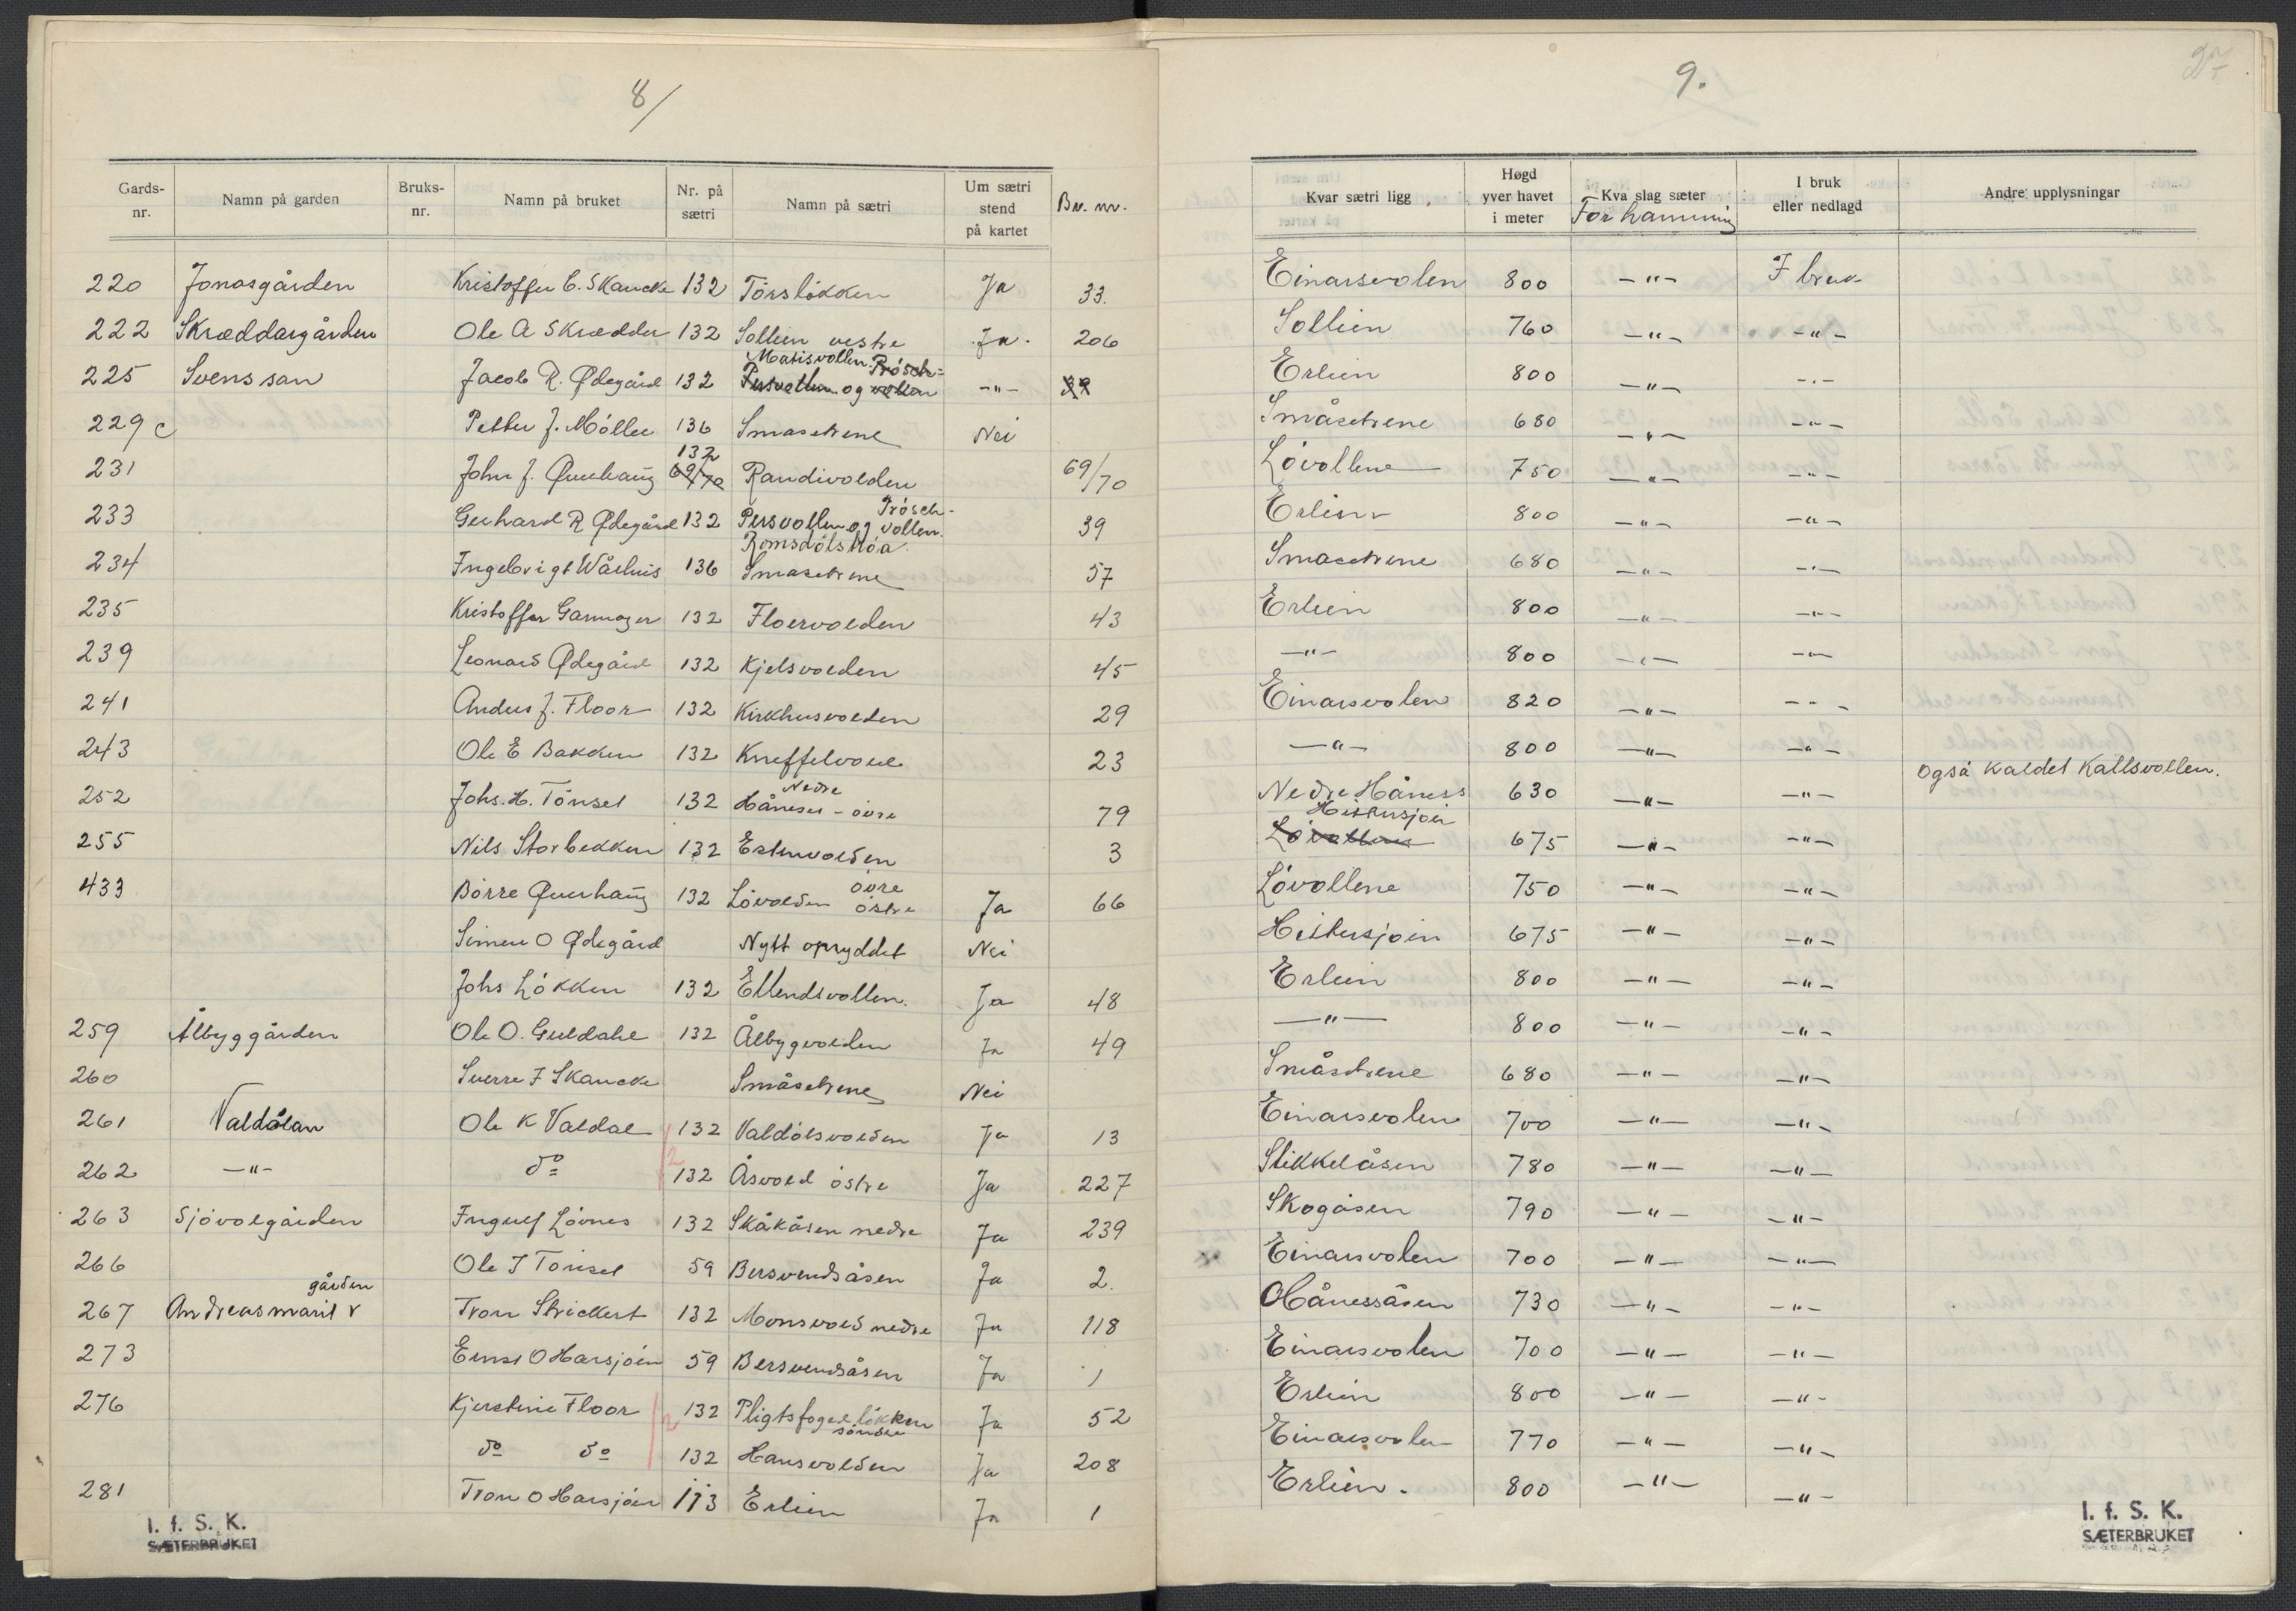 8/
Gards-nr. Namn på garden Bruks-nr. Namn på bruket Nr. på sætri Namn på sætri Um sætri stend på kartet Br. nr.
220 Jonasgården Kristoffer C. Skancke 132 Törslökken Ja 33.
222 Skræddargården Ole A Skrædder 132 Sollien vestre Ja. 206
225 Svenssan Jacob R. Ødegård 132 Matisvollen Persvollen og Prösch=vollen -"- 39
229c Petter J. Möller 136 Smasetrene Nei
231 John J. Qvurhaug 132 69/70 Randivolden 69/70
233 Gerhard R Ødegård 132 Persvollen og Prösch-vollen. 39
Romsdölsköa.
234 Ingebrigt Wårhus 136 Smasetrene 57
235 Kristoffer Garmager 132 Floervolden 43
239 Leonard Ødegård 132 Kjelsvolden 45
241 Anders J. Floor 132 Kirkhusvolden 29
243 Ole E Bakken 132 Kneffelvold 23
252 Johs. H. Tönset 132 Håneset - Nedre övre 79
255 Nils Storbekken 132 Estenvolden 3
433 Börre Qvurhaug 132 Lövolden övre östre Ja 66
Simen O Ødegård Nytt opryddet Nei
Johs Lökken 132 Ellendsvollen. Ja 48
259 Ålbyggården Ole O. Guldahl 132 Ålbygvolden Ja 49
260 Sverre J Skancke Småsetrene Nei
261 Valdålan Ole K Valdal 132 Valdölsvolden Ja 13
262 -"- do 2 132 Åsvold östre Ja 227
263 Sjövolgården Ingulf Lövnes 132 Skåkåsen nedre Ja 239
266 Ole J Tönset 59 Bersvendsåsen Ja 2.
267 Andreasmarit gården Tron Strickert 132 Monsvold nedre Ja 118
273 Ernst O Harsjöen 59 Bersvendsåsen Ja 1
276 Kjerstine Floor 2 132 Pligtsfogedlökken söndre Ja 52
do do 132 Hansvolden Ja 208
281 Tron O Harsjöen 113 Erlien Ja 1
I. f. S. K.
SÆTERBRUKET
9.
27
Kvar sætri ligg Høgd yver havet i meter Kva slag sæter For hamning I bruk eller nedlagd Andre upplysningar
Einarsvolen 800 -"- I bruk
Sollien 760 -"- -"-
Erlien 800 -"- -"-
Småsetrene 680 -"- -"-
Lövollene 750 -"- -"-
Erlien 800 -"- -"-
Smasetrene 680 -"- -"-
Erlien 800 -"- -"-
-"- 800 -"- -"-
Einarsvolen 820 -"- -"-
-"- 800 -"- -"-
Også kaldet Kallsvollen.
Nedre Håness 630 -"- -"-
Hittersjöen Lövollene 675 -"- -"-
Lövollene 750 -"- -"-
Hittersjöen 675 -"- -"-
Erlien 800 -"- -"-
-"- 800 -"- -"-
Småsetrene 680 -"- -"-
Einarsvolen 700 -"- -"-
Stikkelåsen 780 -"- -"-
Skogåsen 790 -"- -"-
Einarsvolen 700 -"- -"-
Hånessåsen 730 -"- -"-
Einarsvolen 700 -"- -"-
Erlien 800 -"- -"-
Einarsvolen 770 -"- -"-
Erlien. 800 -"- -"-
I. f. S. K.
SÆTERBRUKET